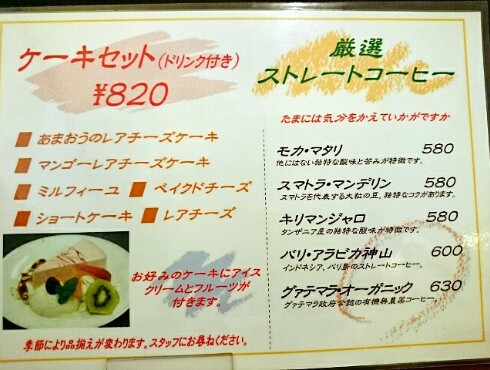 ケーキセット(ドリンク付き)
¥820
あまおうのレアチーズケーキ
マンゴーレアチーズケーキ
ミルフィーユ ベイクドチーズ
ショートケーキ レアチーズ
お好みのケーキにアイス
クリームとフルーツが
付きます。
季節により品揃えが変わります。スタッフにお尋ねください。
厳選
ストレートコーヒー
たまには気分をかえていかがですか
モカ・マタリ 580
他にはない独特な酸味と苦みが特徴です。
スマトラ・マンデリン 580
スマトラを代表する大粒の豆、独特なコクがあります。
キリマンジャロ 580
タンザニア産の独特な酸味が特徴です。
バリ・アラビカ神山 600
インドネシア、バリ島のストレートコーヒー。
グァテマラ・オーガニック 630
グァテマラ政府公認の有機無農薬コーヒー。